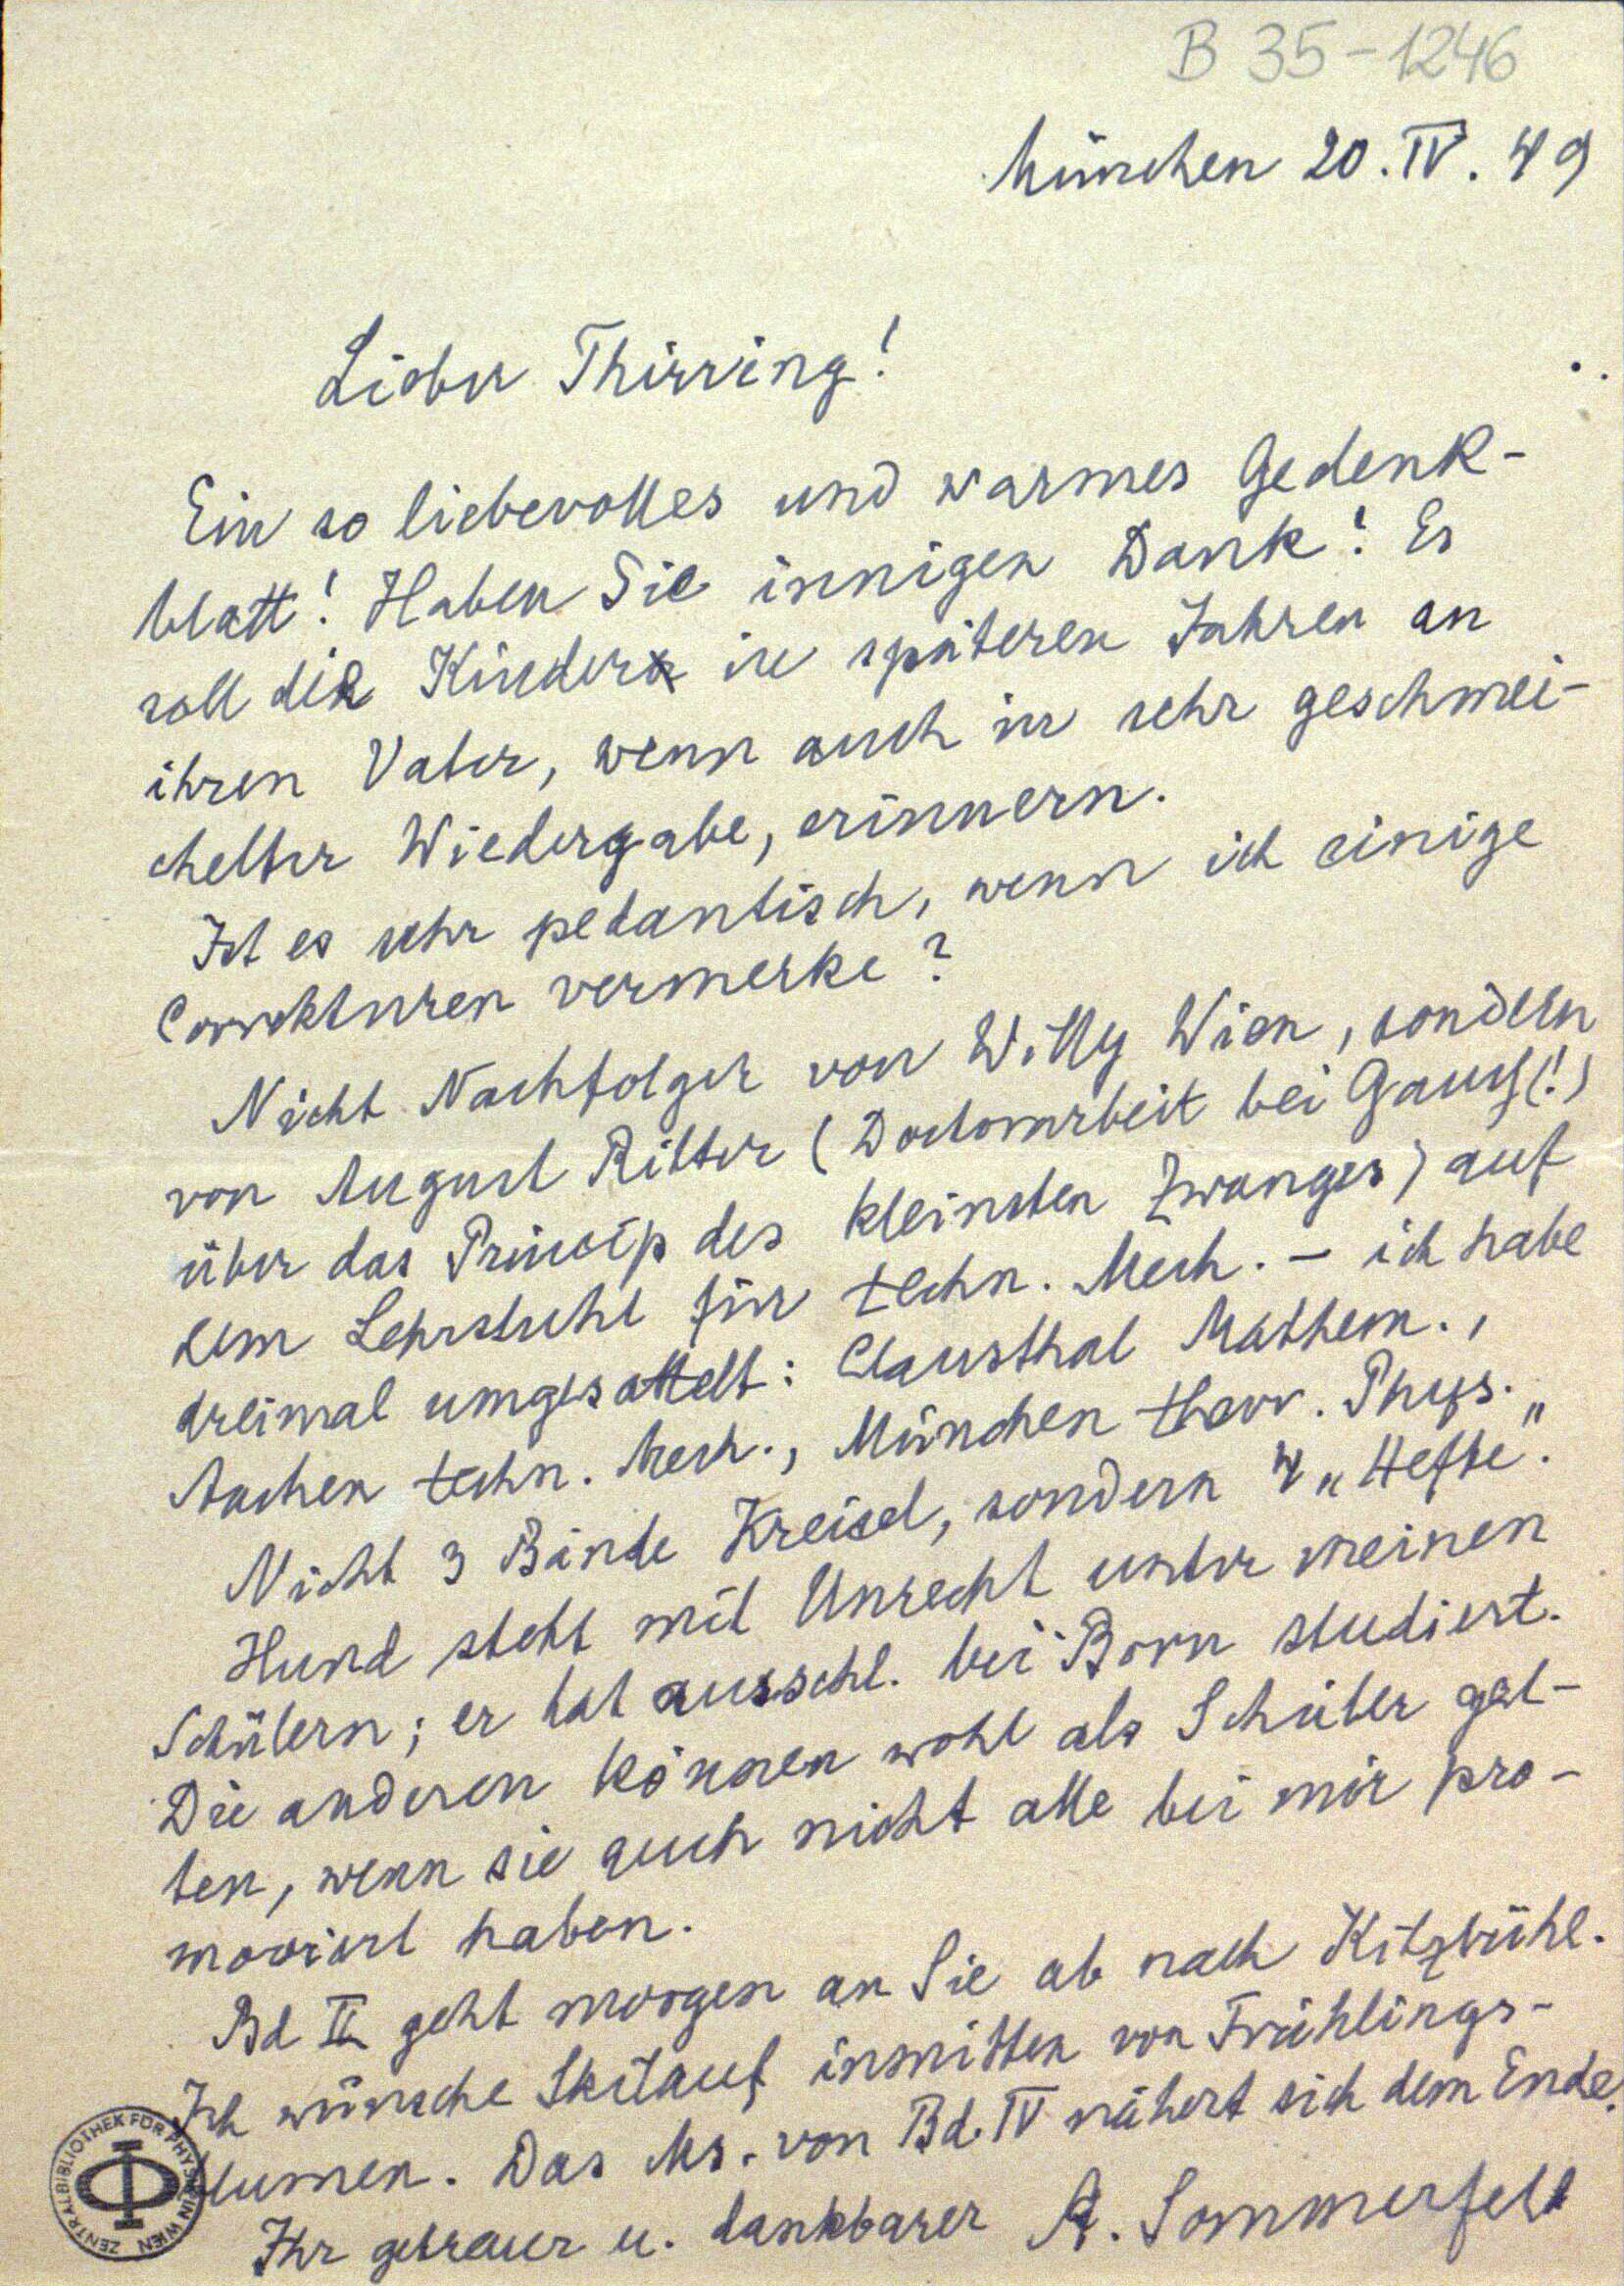 B 35-1246
München 20.IV.49
Lieber Thirring!
Ein so liebevolles und warmes Gedenk-
blatt! Haben Sie innigen Dank! Es
soll die Kinder in späteren Jahren an
ihren Vater, wenn auch in sehr geschmei-
chelter Wiedergabe, erinnern.
Ist es sehr pedantisch, wenn ich einige
Correkturen vermerke?
Nicht Nachfolger von Willy Wien, sondern
von August Ritter (Doctorarbeit bei Gauß(!)
über das Princip des kleinsten Zwanges) auf
dem Lehrstuhl für techn. Mech. – ich habe
dreimal umgesattelt: Clausthal Mathem.,
Aachen techn. Mech., München theor. Phys.
Nicht 3 Bände Kreisel, sondern 4 „Hefte".
Hund steht mit Unrecht unter meinen
Schülern; er hat ausschl. bei Born studiert.
Die anderen können wohl als Schüler gel-
ten, wenn sie auch nicht alle bei mir pro-
moviert haben.
Bd II geht morgen an Sie ab nach Kitzbühl.
Ich wünsche Skilauf inmitten von Frühlings-
blumen. Das Ms. von Bd. IV nähert sich dem Ende.
Ihr getreuer u. dankbarer A. Sommerfeld
ZENTRALBIBLIOTHEK FÜR PHYSIK IN WIEN